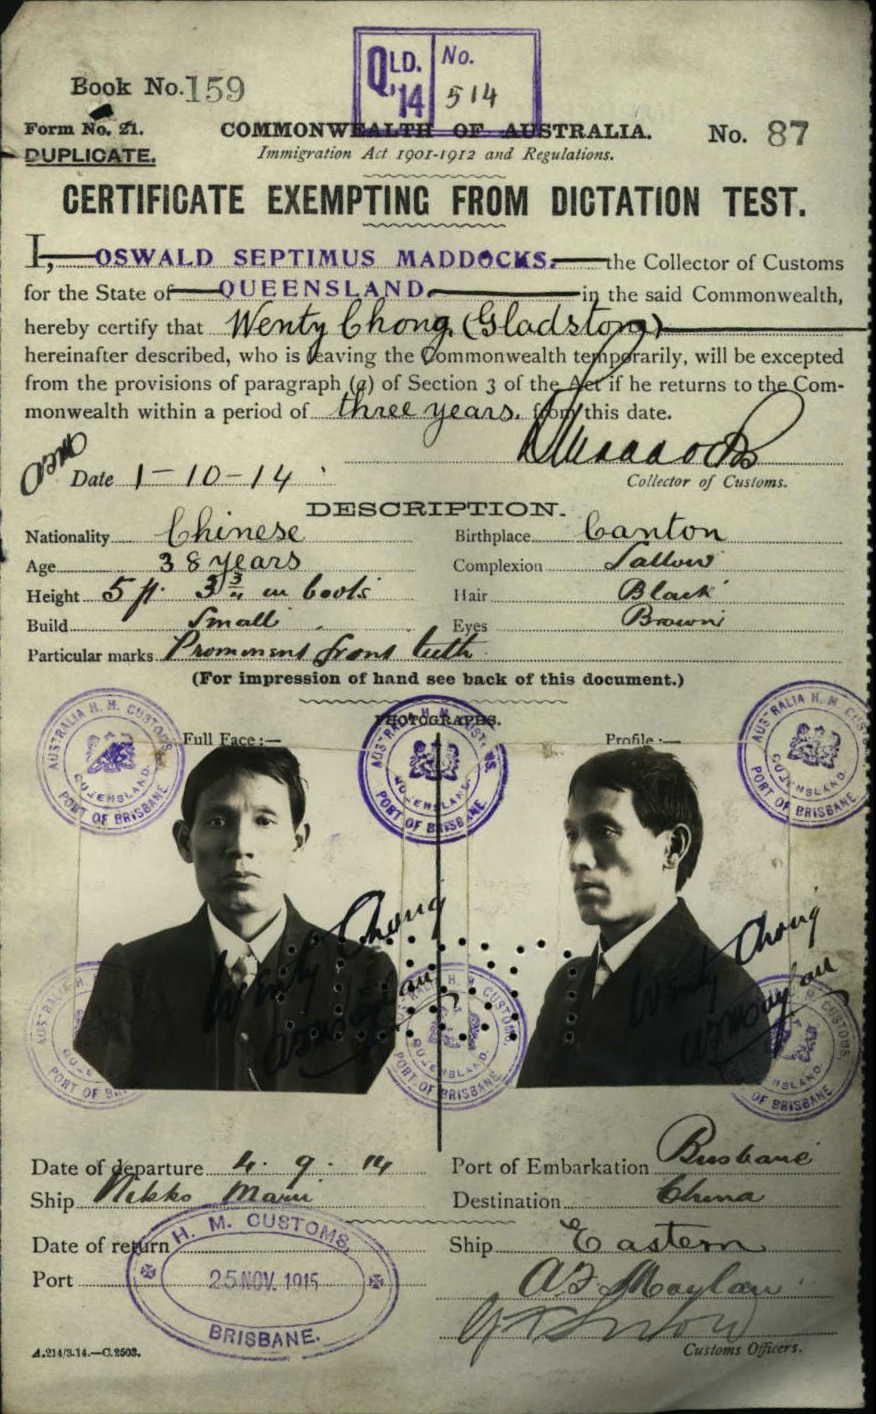 QLD. No.
'14 514
Book No. 159
Form No. 21.
COMMONWEALTH OF AUSTRALIA.
No. 87
DUPLICATE.
Immigration Act 1901-1912 and Regulations.
CERTIFICATE EXEMPTING FROM DICTATION TEST.
I, OSWALD SEPTIMUS MADDOCKS, the Collector of Customs
for the State of QUEENSLAND, in the said Commonwealth,
hereby certify that Wenty Chong, (Gladstone)
hereinafter described, who is leaving the Commonwealth temporarily, will be excepted
from the provisions of paragraph (a) of Section 3 of the Act if he returns to the Com-
monwealth within a period of three years. from this date.
Date 1-10-14
Collector of Customs.
DESCRIPTION.
Nationality Chinese Birthplace Canton
Age 38 years Complexion Sallow
Height 5 ft. 3 3/4 in boots Hair Black
Build Small Eyes Brown
Particular marks Prominent front teeth
(For impression of hand see back of this document.)
PHOTOGRAPHS.
Full Face :— Profile :—
AUSTRALIA H. M. CUSTOMS. QUEENSLAND. PORT OF BRISBANE
AUSTRALIA H. M. CUSTOMS. QUEENSLAND. PORT OF BRISBANE
AUSTRALIA H. M. CUSTOMS. QUEENSLAND. PORT OF BRISBANE
Wenty Chong
Wenty Chong
Date of departure 4. 9. 14 Port of Embarkation Brisbane
Ship Nikko Maru Destination China
Date of return Ship Eastern
Port
H. M. CUSTOMS
25 NOV. 1915
BRISBANE.
Customs Officers.
A.214/3.14.—C.2503.